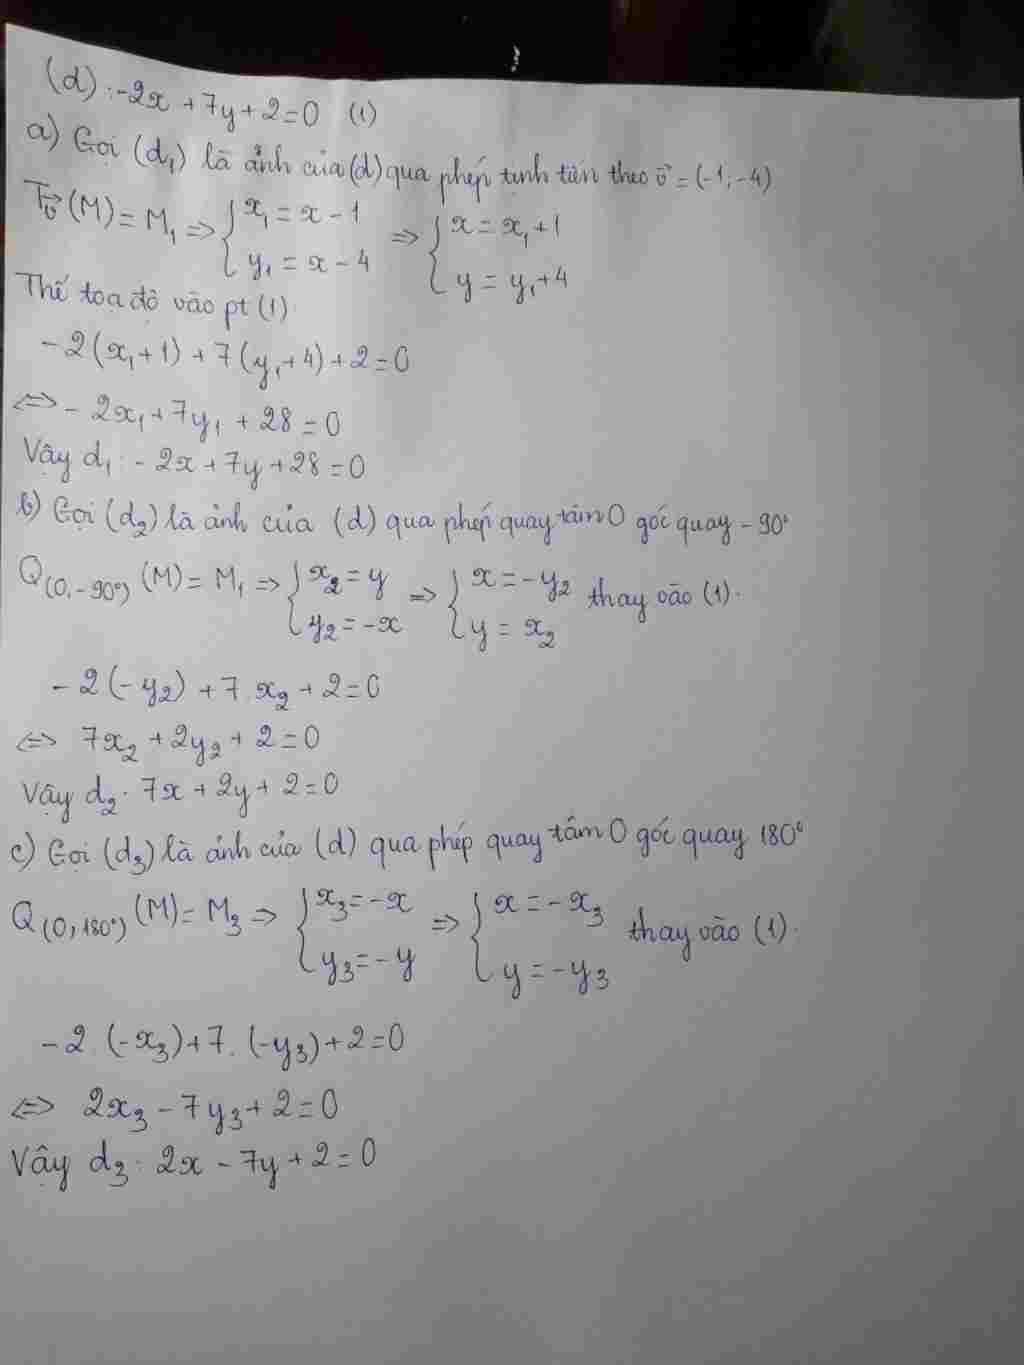 (d): -2x + 7y + 2 = 0 (1)
a) Gọi (d₁) là ảnh của (d) qua phép tịnh tiến theo v⃗ = (-1; -4)
T_v⃗ (M) = M₁ => { x₁ = x - 1 ; y₁ = x - 4 => { x = x₁ + 1 ; y = y₁ + 4
Thế toạ độ vào pt (1)
-2(x₁ + 1) + 7(y₁ + 4) + 2 = 0
<=> - 2x₁ + 7y₁ + 28 = 0
Vậy d₁: - 2x + 7y + 28 = 0
b) Gọi (d₂) là ảnh của (d) qua phép quay tâm O góc quay - 90°
Q(O, - 90°) (M) = M₁ => { x₂ = y ; y₂ = -x => { x = -y₂ ; y = x₂ thay vào (1).
- 2(-y₂) + 7.x₂ + 2 = 0
<=> 7x₂ + 2y₂ + 2 = 0
Vậy d₂: 7x + 2y + 2 = 0
c) Gọi (d₃) là ảnh của (d) qua phép quay tâm O góc quay 180°
Q(O, 180°) (M) = M₃ => { x₃ = -x ; y₃ = -y => { x = -x₃ ; y = -y₃ thay vào (1).
-2.(-x₃) + 7.(-y₃) + 2 = 0
<=> 2x₃ - 7y₃ + 2 = 0
Vậy d₃: 2x - 7y + 2 = 0